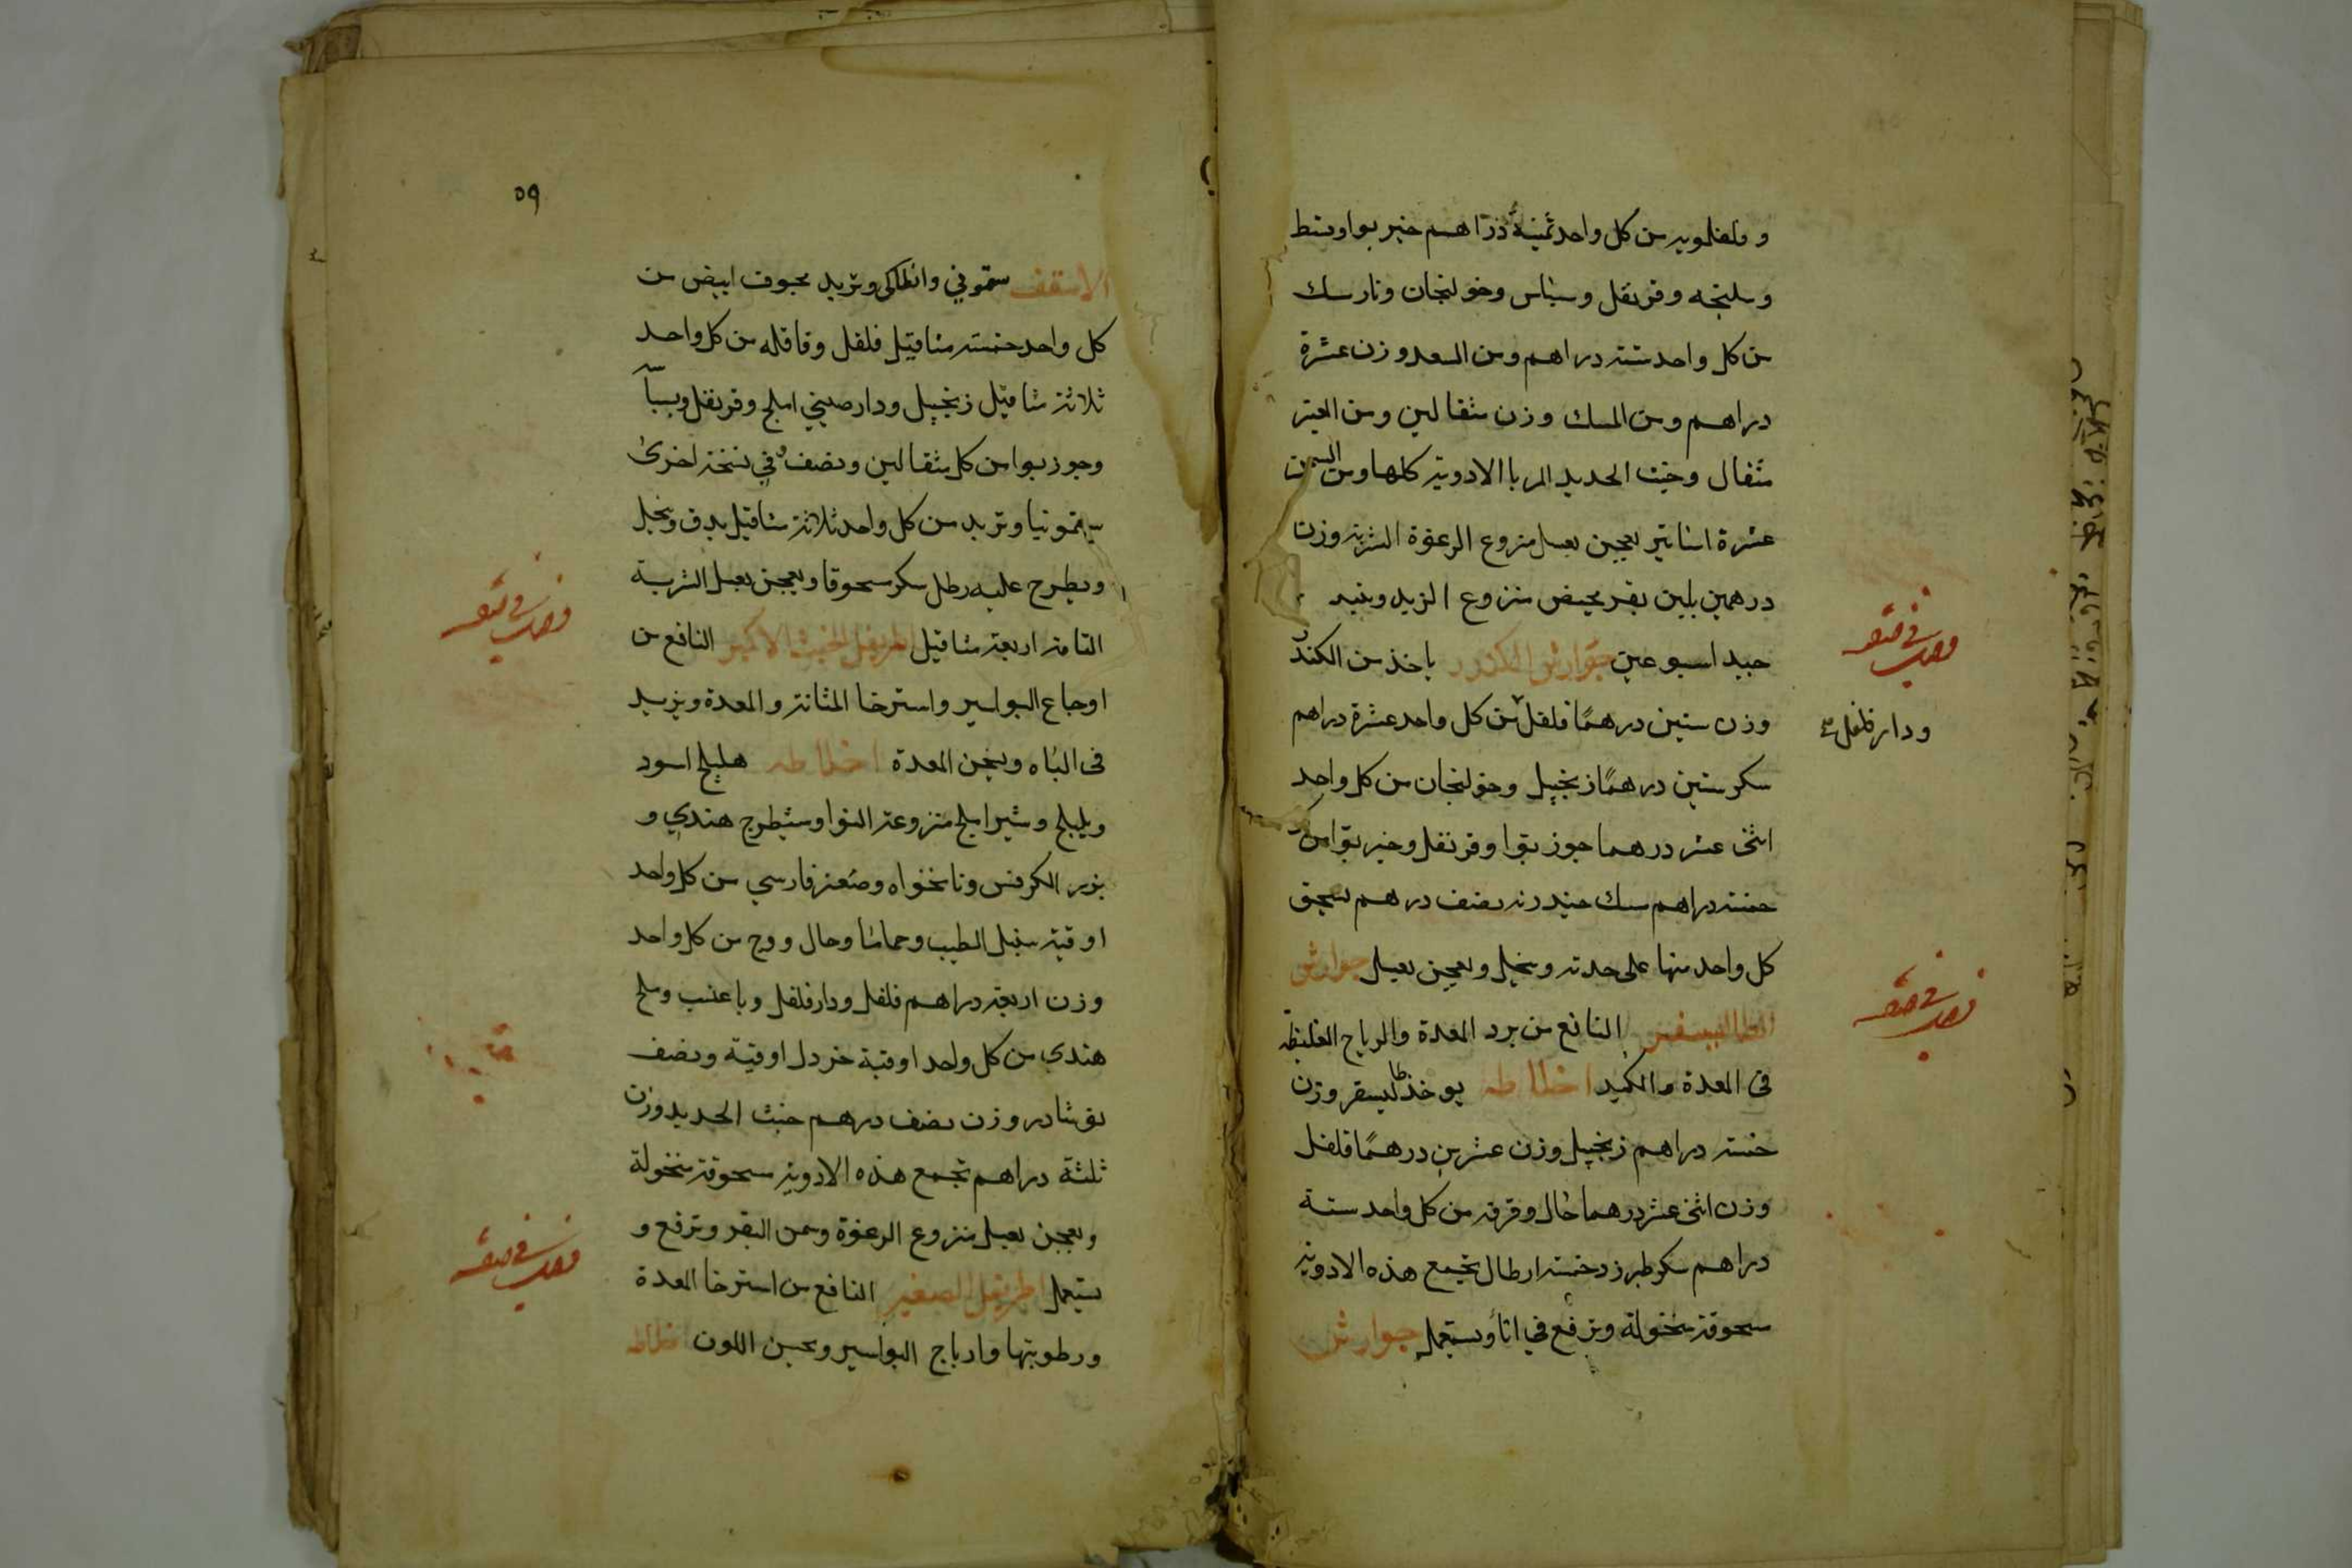 و فلفلمويه من كل واحد ثمنية دراهم خير بوا وقسط
وسليخه وقرنفل وبسباس وخولنجان ونارمسك
من كل واحد ستة دراهم ومن السعد وزن عشرة
دراهم ومن المسك وزن مثقالين ومن العنبر
مثقال وخبث الحديد المربا الادوية كلها ومن السمن
عشرة اساتير يعجن بعسل منزوع الرغوة الشربة وزن
درهمين بلبن بقر مخيض منزوع الزبد ونبيذ
جيد اسبوعين جوارش الكندر ياخذ من الكندر
وزن ستين درهمًا فلفل من كل واحد عشرة دراهم
ودارفلفل
سكر ستين درهمًا زنجبيل وخولنجان من كل واحد
اثنى عشر درهما جوزبوا وقرنفل وخير بوا من كل
خمسة دراهم مسك نصف درهم يسحق
كل واحد منها على حدته وينخل ويعجن بعسل جوارش
الطاليسفر النافع من برد المعدة والرياح الغليظة
فى المعدة والكبد اخلاطه يوخذ طاليسفر وزن
خمسة دراهم زنجبيل وزن عشرين درهمًا فلفل
وزن اثنى عشر درهما هال وقرفه من كل واحد ستة
دراهم سكر طبرزد خمسة ارطال تجمع هذه الادوية
مسحوقة منخولة وترفع في انآء ويستعمل جوارش
٥٩
الاسقف سقموني وانطاكى وتربد مجوف ابيض من
كل واحد خمسة مثاقيل فلفل وقاقله من كل واحد
ثلاثة مثاقيل زنجبيل ودارصيني املج وقرنفل وبسباسه
وجوزبوا من كل مثقالين ونصف وفي نسخة اخرى
سقمونيا وتربد من كل واحد ثلاثة مثاقيل يدق وينخل
ويطرح عليه رطل سكر مسحوقا ويعجن بعسل الشربة
التامة اربعة مثاقيل اطريفل الخبث الاكبر النافع من
اوجاع البواسير واسترخا المثانة والمعدة ويزيد
فى الباه ويسخن المعدة اخلاطه هليلج اسود
وبليلج وشيراملج منزوعة النوا وشيطرج هندي و
بزر الكرفس ونانخواه وصعتر فارسي من كل واحد
اوقية سنبل الطيب وحماما وهال ووج من كل واحد
وزن اربعة دراهم فلفل ودارفلفل وملح
هندي من كل واحد اوقية خردل اوقية ونصف
نوشادر وزن نصف درهم خبث الحديد وزن
ثلثة دراهم تجمع هذه الادوية مسحوقة منخولة
ويعجن بعسل منزوع الرغوة وسمن البقر وترفع و
يستعمل اطريفل الصغير النافع من استرخا المعدة
ورطوبتها وارياح البواسير ويحسن اللون اخلاطه